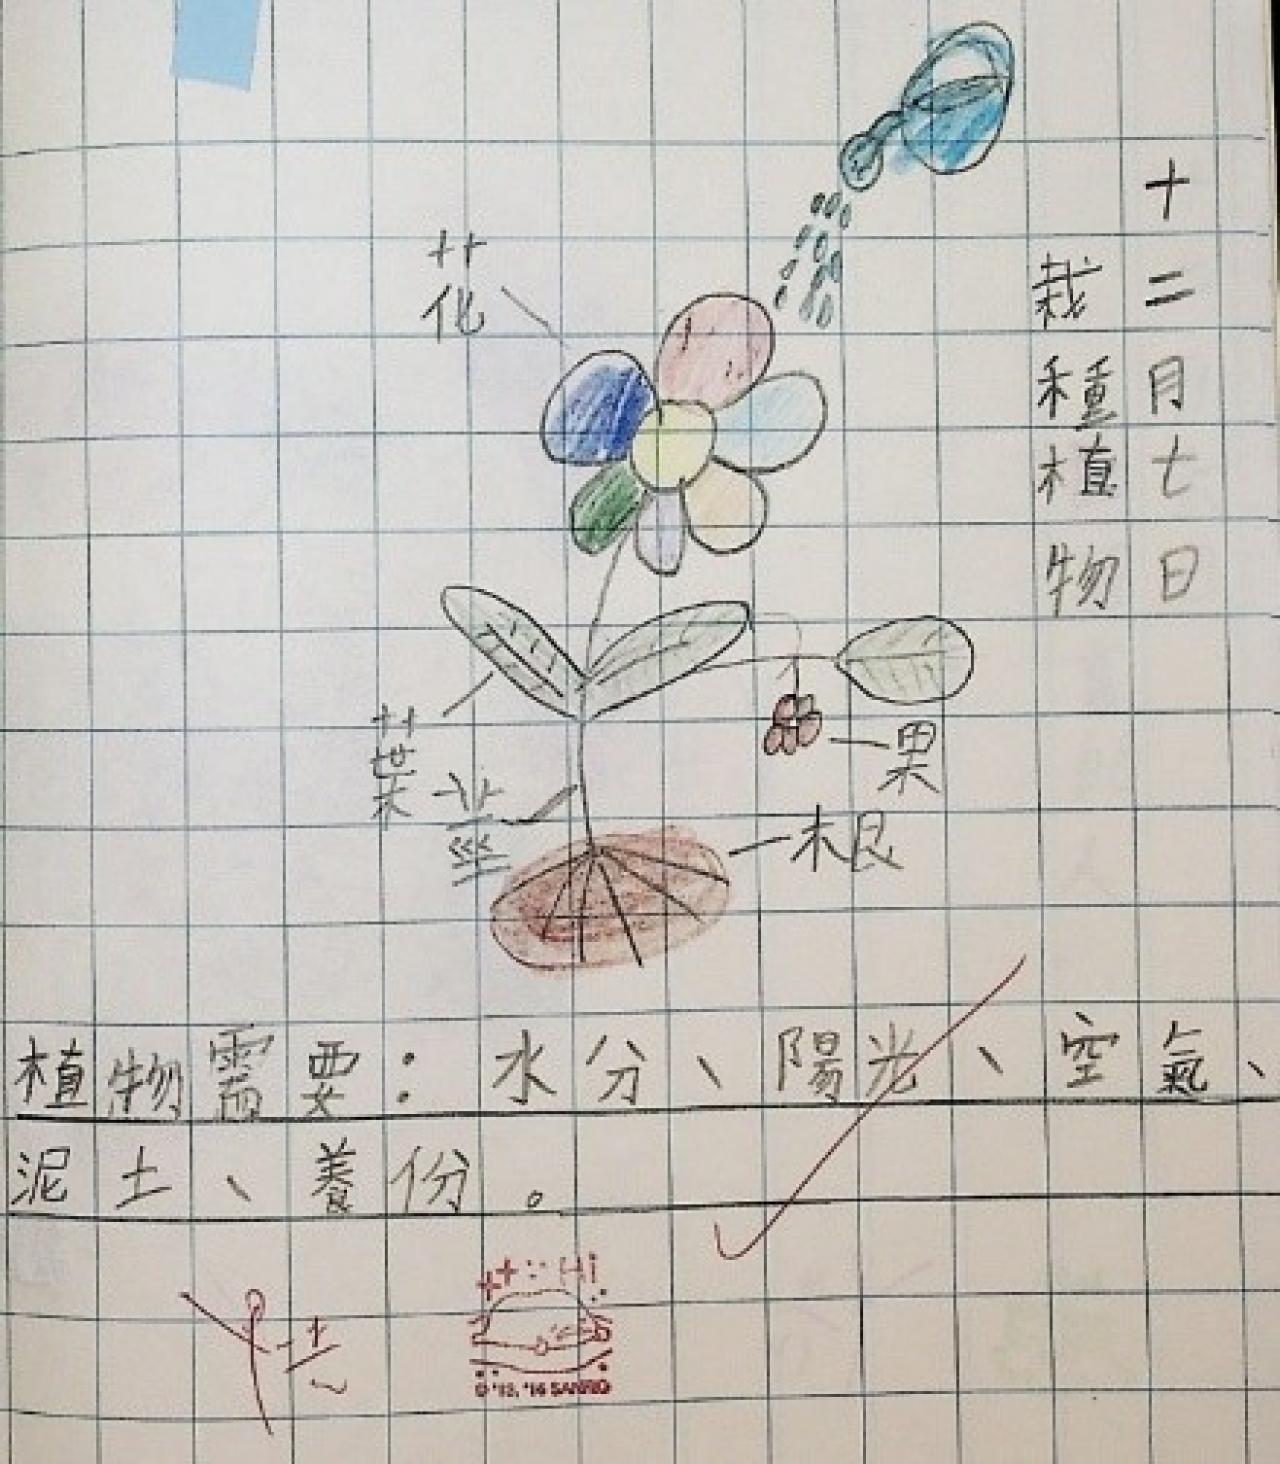 十二月七日
栽種植物
花
葉
莖
果
根
植物需要：水分、陽光、空氣、
泥土、養份。
Hi
© '13, '16 SANRIO